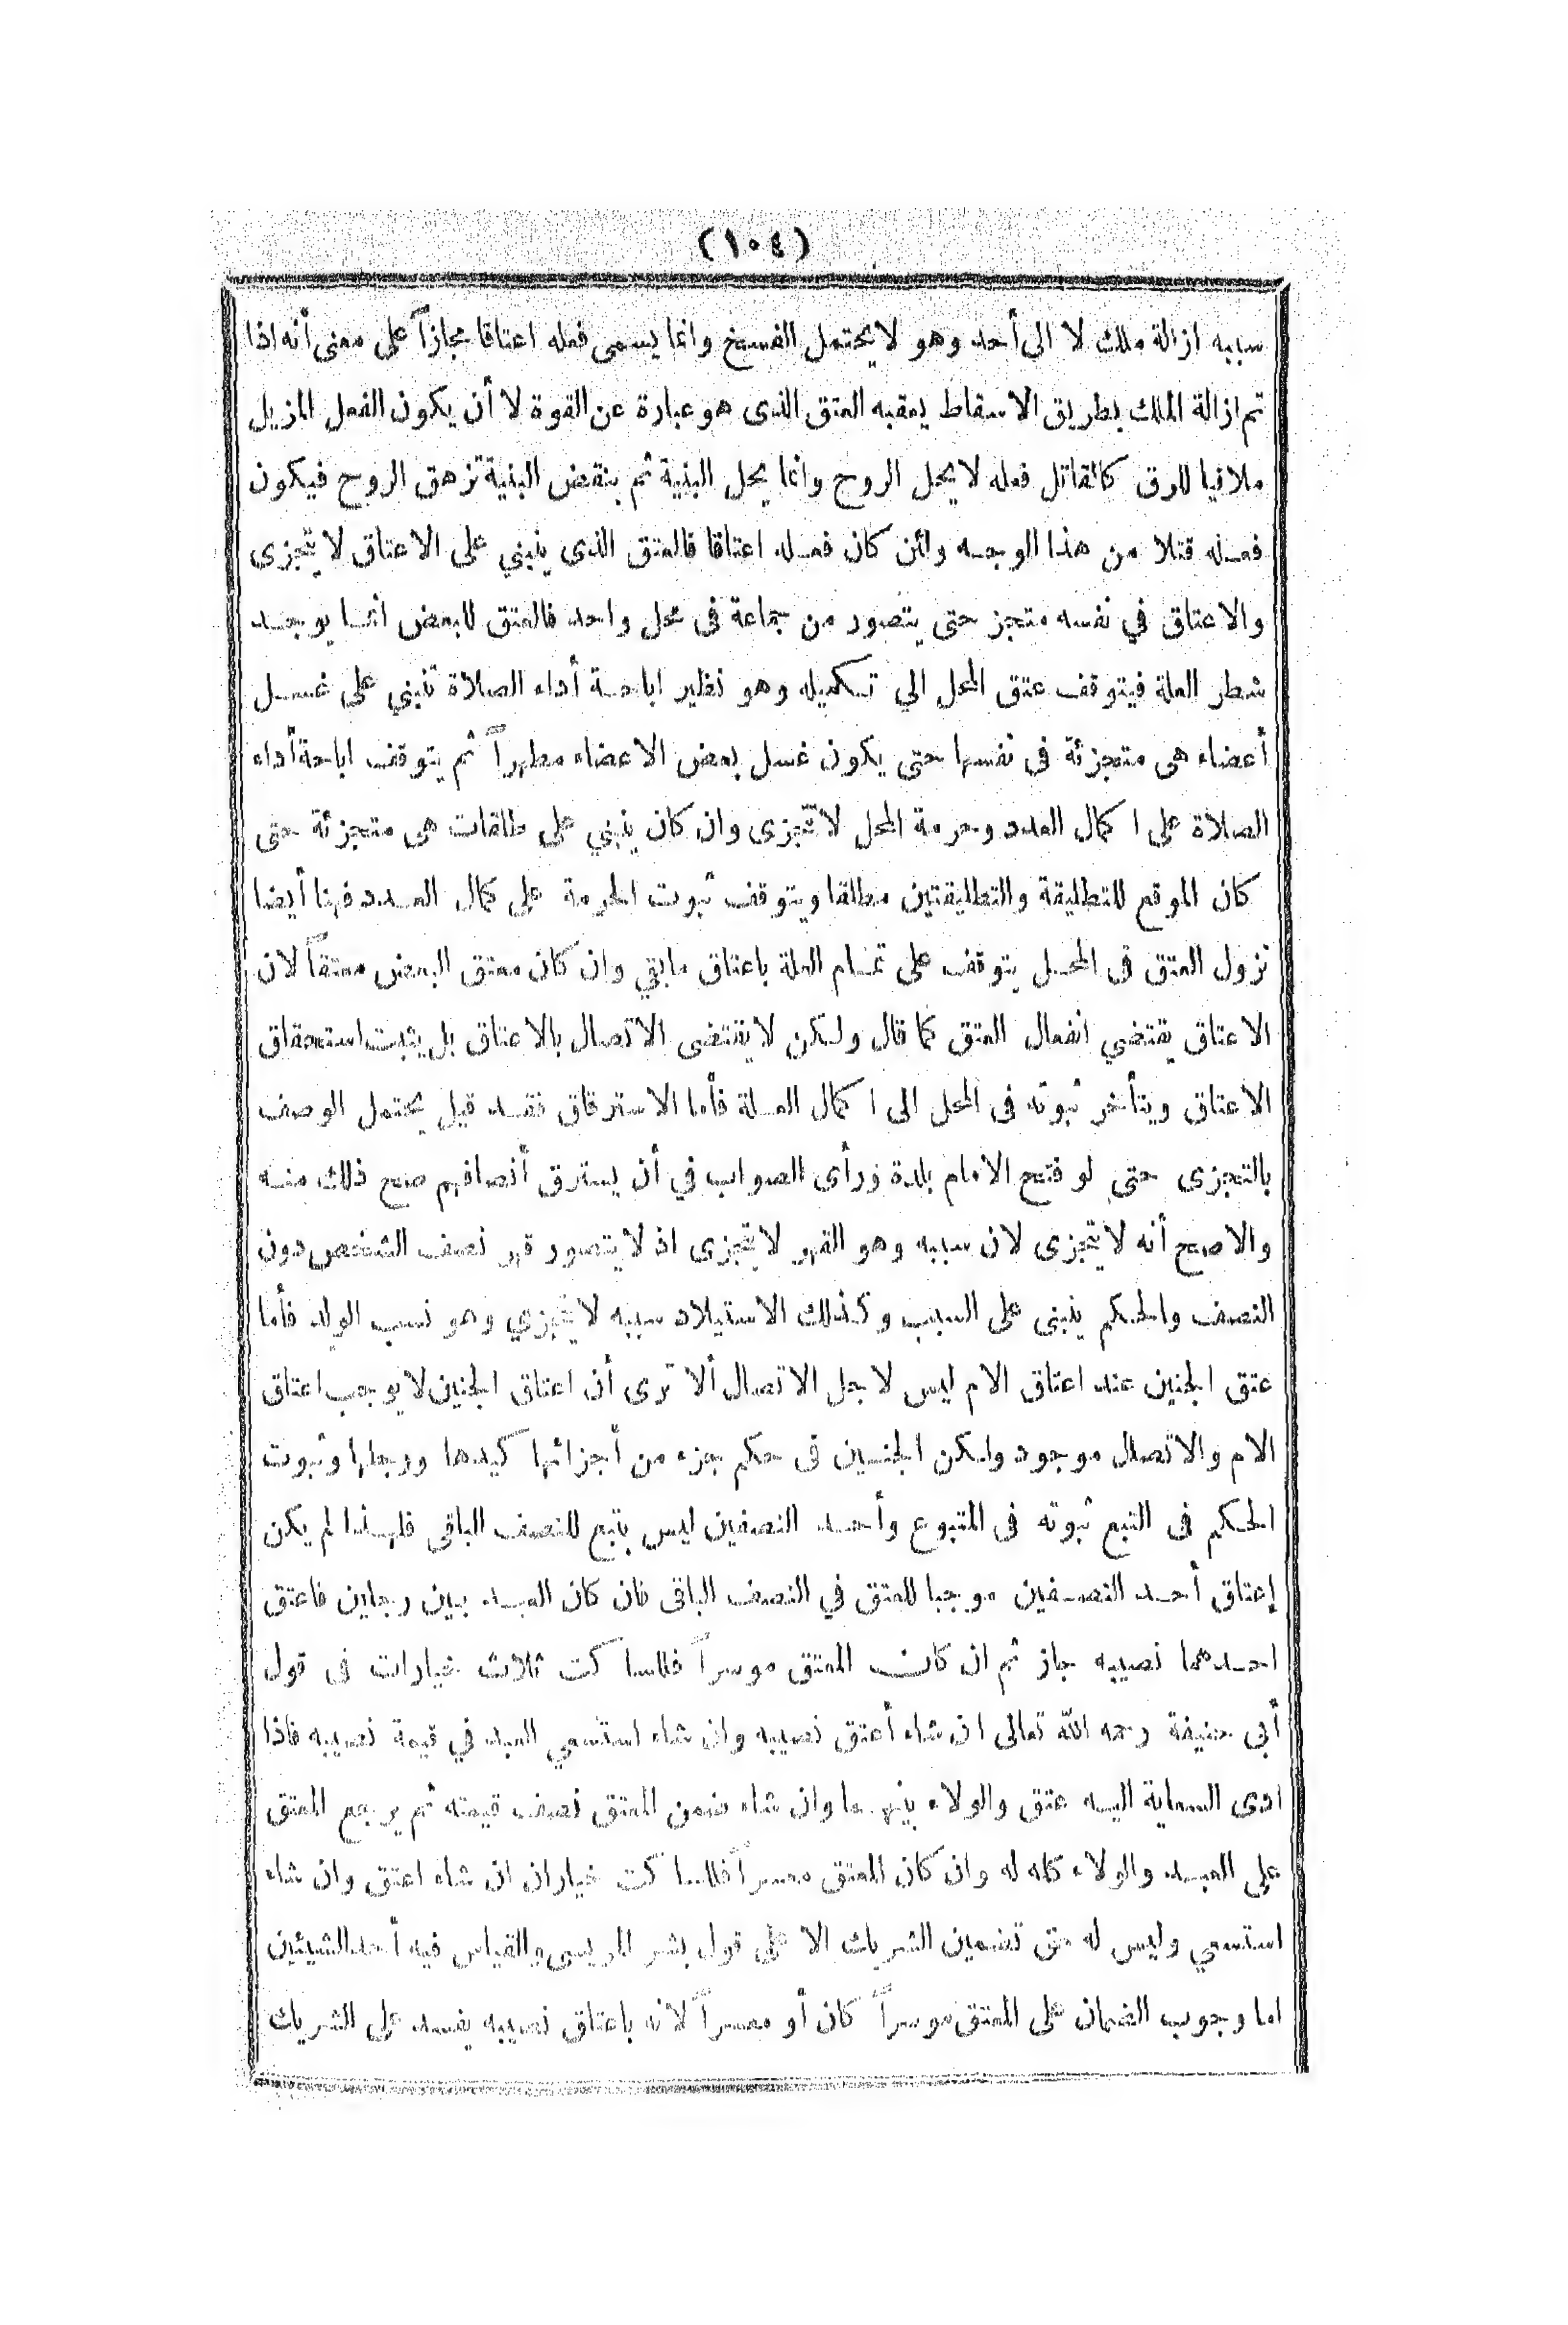 (١٠٤)
سببه ازالة ملك لا الى أحد وهو لا يحتمل الفسخ وانما يسمى فعله اعتاقا مجازاً على معنى أنه اذا
تم ازالة الملك بطريق الاسقاط يعقبه العتق الذى هو عبارة عن القوة لا أن يكون الفعل المزيل
ملاقيا للرق كالقاتل فعله لا يحل الروح وانما يحل البنية ثم بنقض البنية تزهق الروح فيكون
فعله قتلا من هذا الوجه ولئن كان فعله اعتاقا فالعتق الذى ينبني على الاعتاق لا يتجزى
والاعتاق في نفسه متجز حتى يتصور من جماعة فى محل واحد فالعتق للبعض انما يوجد
شطر العلة فيتوقف عتق المحل الي تكميله وهو نظير اباحة أداء الصلاة تنبني على غسل
أعضاء هى متجزئة فى نفسها حتى يكون غسل بعض الاعضاء مطهراً ثم يتوقف اباحة أداء
الصلاة على ا كمال العدد وحرمة المحل لا تتجزى وان كان ينبني على طلقات هى متجزئة حتى
كان الموقع للتطليقة والتطليقتين مطلقا ويتوقف ثبوت الحرمة على كمال العدد فهنا أيضا
نزول العتق فى المحل يتوقف على تمام العلة باعتاق مابقي وان كان معتق البعض معتقاً لان
الاعتاق يقتضي انفعال العتق كما قال ولكن لا يقتضى الاتصال بالاعتاق بل يثبت استحقاق
الاعتاق ويتأخر ثبوته فى المحل الى ا كمال العلة فأما الاسترقاق فقد قيل يحتمل الوصف
بالتجزى حتى لو فتح الامام بلدة ورأى الصواب في أن يسترق أنصافهم صح ذلك منه
والاصح أنه لا يتجزى لان سببه وهو القهر لا يتجزى اذ لا يتصور قهر نصف الشخص دون
النصف والحكم ينبنى على السبب وكذلك الاستيلاد سببه لا يتجزي وهو نسب الولد فأما
عتق الجنين عند اعتاق الام ليس لاجل الاتصال ألا ترى أن اعتاق الجنين لا يوجب اعتاق
الام والاتصال موجود ولكن الجنين فى حكم جزء من أجزائها كيدها ورجلها وثبوت
الحكم فى التبع ثبوته فى المتبوع وأحد النصفين ليس بتبع للنصف الباقى فلهذا لم يكن
إعتاق أحد النصفين موجبا للعتق في النصف الباقى فان كان العبد بين رجلين فاعتق
احدهما نصيبه جاز ثم ان كان المعتق موسراً فللسا كت ثلاث خيارات فى قول
أبى حنيفة رحمه الله تعالى ان شاء أعتق نصيبه وان شاء استسعي العبد في قيمة نصيبه فاذا
ادى السعاية اليه عتق والولاء بينهما وان شاء ضمن المعتق نصف قيمته ثم يرجع المعتق
على العبد والولاء كله له وان كان المعتق معسراً فللسا كت خياران ان شاء اعتق وان شاء
استسعي وليس له حق تضمين الشريك الا على قول بشر المريسى والقياس فيه أحد الشيئين
اما وجوب الضمان على المعتق موسراً كان أو معسراً لانه باعتاق نصيبه يفسد على الشريك